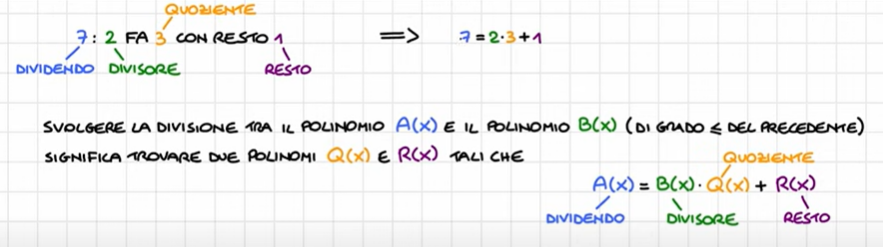 QUOZIENTE
7 : 2 FA 3 CON RESTO 1 => 7 = 2·3+1
DIVIDENDO DIVISORE RESTO
SVOLGERE LA DIVISIONE TRA IL POLINOMIO A(x) E IL POLINOMIO B(x) (DI GRADO ≤ DEL PRECEDENTE)
SIGNIFICA TROVARE DUE POLINOMI Q(x) E R(x) TALI CHE
QUOZIENTE
A(x) = B(x)·Q(x) + R(x)
DIVIDENDO DIVISORE RESTO